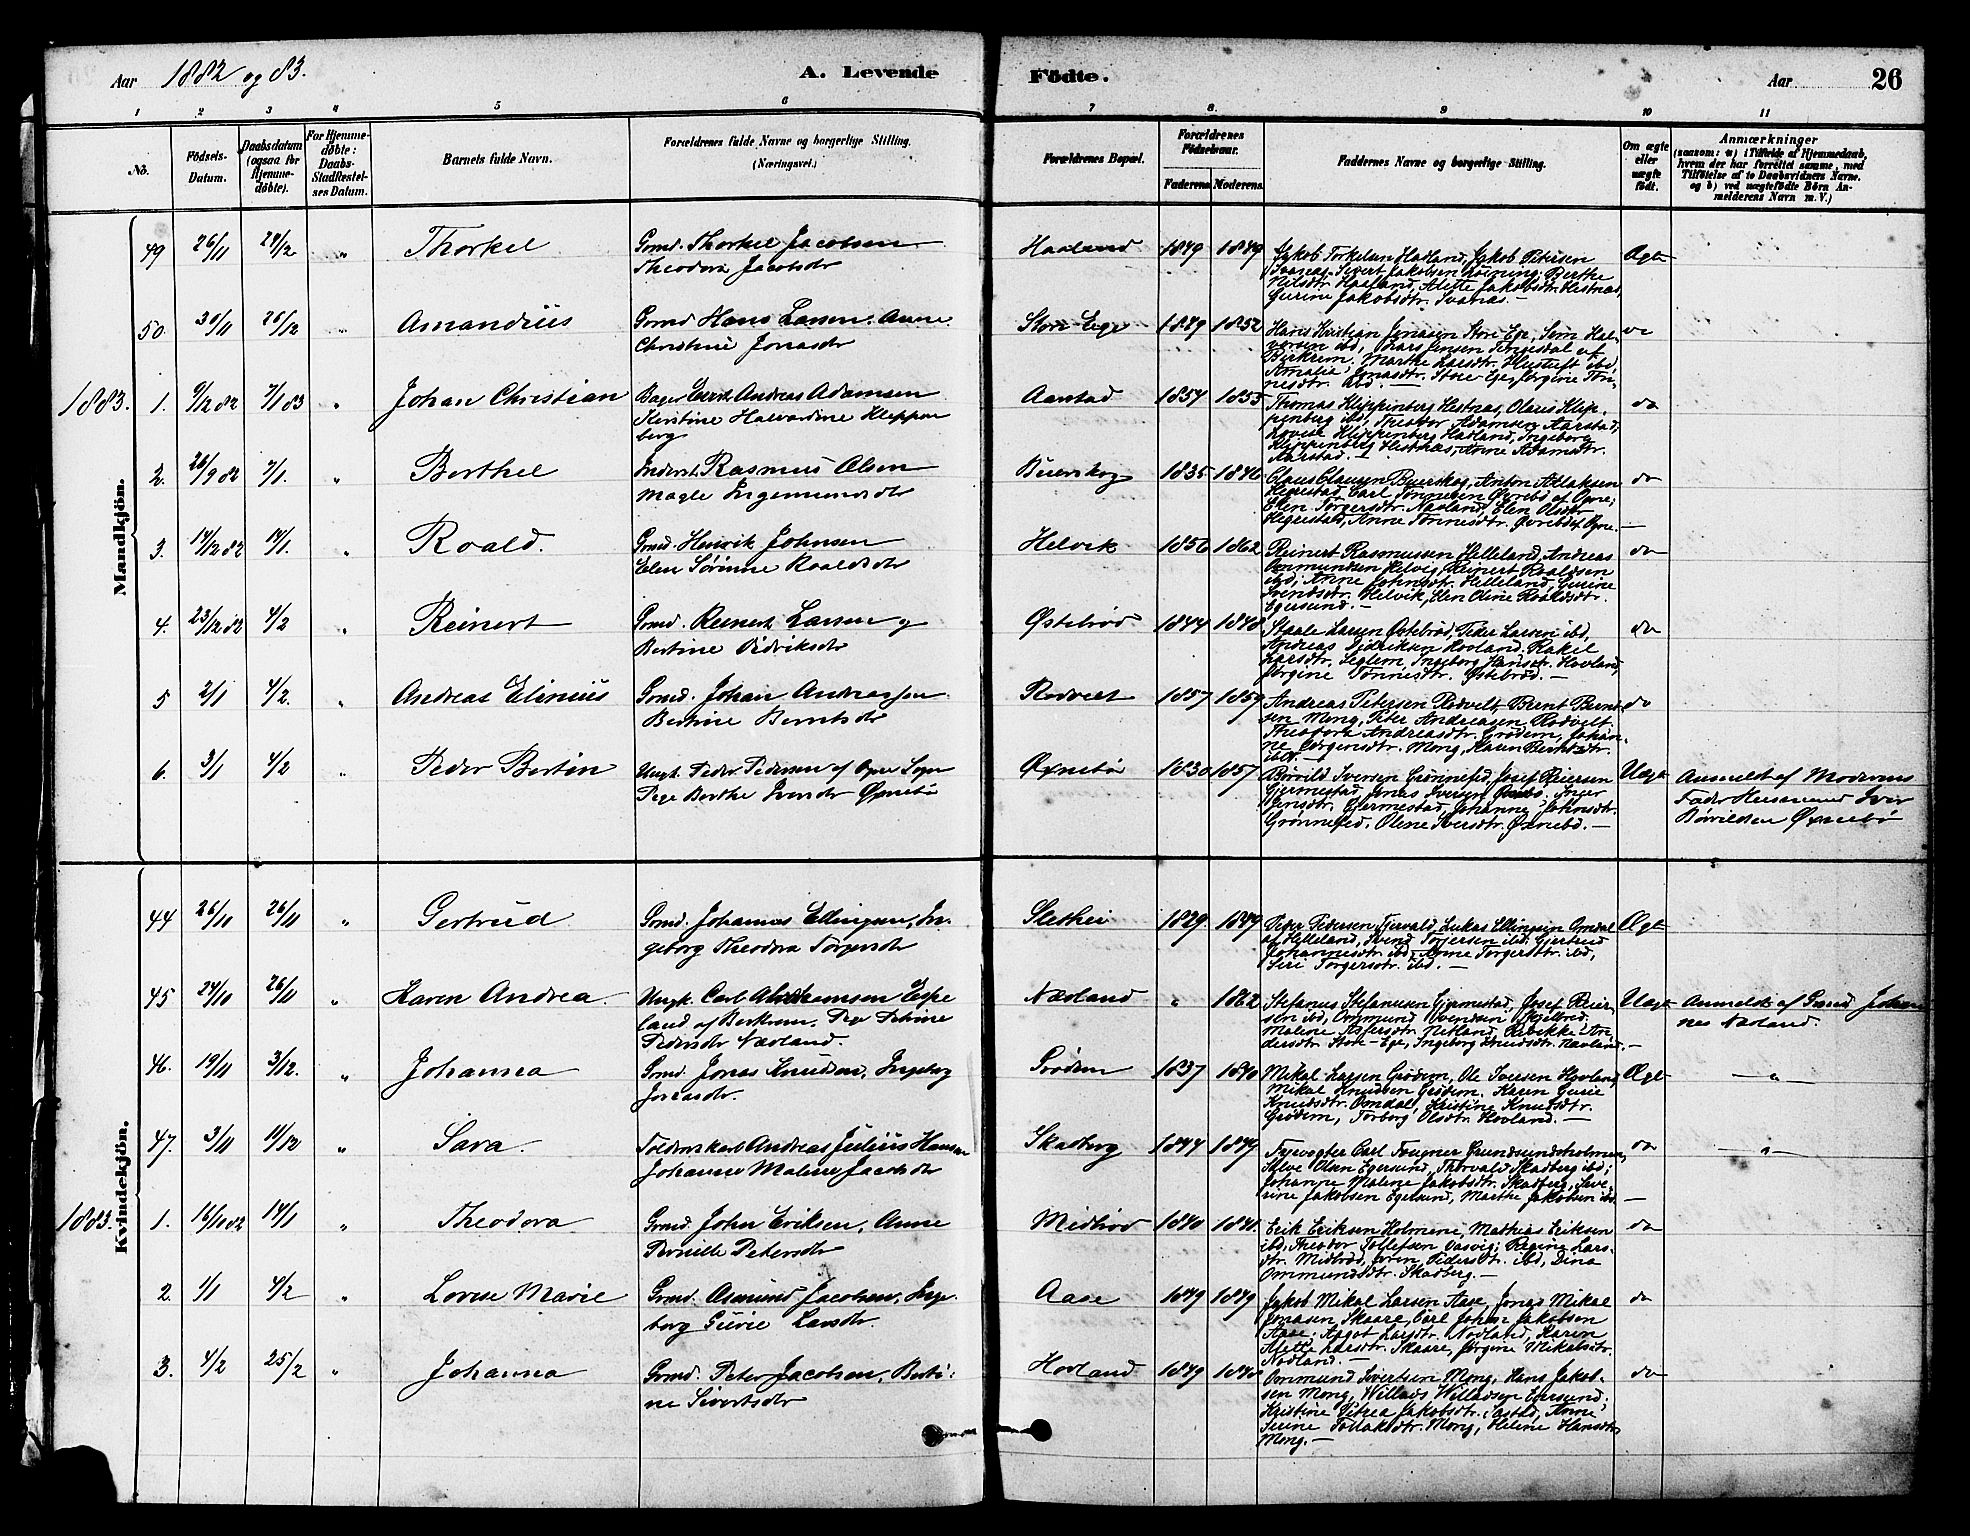 Aar 1882 og 83.
A. Levende Födte.
Aar 26
1 2 3 4 5 6 7 8. 9 10 11
No.
Födsels-Datum.
Daabsdatum (ogsaa for Hjemmedöbte).
For Hjemmedöbte: Daabs-Stadfæstelses Datum.
Barnets fulde Navn.
Forældrenes fulde Navne og borgerlige Stilling. (Næringsvei.)
Forældrenes Bopæl.
Forældrenes Födselsaar.
Faderens Moderens
Faddernes Navne og borgerlige Stilling.
Om ægte eller uægte födt.
Anmærkninger
(saasom: a) i Tilfælde af Hjemmedaab, hvem der har forrettet samme, med Tilföielse af to Daabsvidners Navne. og b) ved uægtefödte Börn Anmelderens Navn m.V.)
Mandkjön.
49 26/11 24/12 " Thorkel
Grmd. Thorkel Jacobsen
Theodora Jacobsdtr
Haaland 1849 1849
Jakob Torkelsen Hadland, Jakob Petersen
Svanæs, Sivert Jakobsen
Nilsdtr. Haaland, Alette Jakobsdtr. Hestnæs,
Gurine Jakobsdtr. Svanæs. —
Ægt
50. 30/11 26/12 " Amandius
Grmd Hans Larsen. Anne
Christine Jonasdtr
Store Ege 1849 1852
Hans Kristian Jonasen Store Ege,
Birkrem. Marthe Larsdtr.
do
1883. 1. 9/12 82 7/1 83 " Johan Christian
Bager Andreas Adamsen
Kirstine Halvardine Kleppenberg
Aarstad 1857 1855
Thomas Klippenberg Hestnæs, Olaus Klippenberg ibd, Theodor Adamsen Aarstad,
Lovise Klippenberg Hadland, Ingeborg
Klippenberg Hestnæs, Anne Adamsdtr.
Aarstad. —
do
2. 26/9 82 7/1. " Berthel
Inderst. Rasmus Olsen
Magle Ingemundsdtr
Buerskog 1835 1846
Claus Clausen Buerskog, Anton Aslaksen
Hegrestad, Carl Tønnesen Øvrebø af Ogne;
Elen Torgersdtr. Nædland, Elen Olsdtr
Hegrestad, Anne Tønnesdtr. Øvrebø af Ogne. —
do
3. 14/12 82 14/1. " Roald.
Grmd Henrik Johnsen
Elen Sørinne Roaldsdtr
Helvik 1856 1862
Reinert Rasmussen Helleland, Andreas
Ommundsen Helvig, Reinert Roaldsen
ibd; Anne Johnsdtr. Helleland, Gurine
Svendsdtr. Helvik, Elen Oline Roaldsdtr.
Egersund. —
do
4. 23/12 82 4/2 " Reinert
Grmd. Reinert Larsen og
Bertine Didriksdtr
Østebrød 1844 1848
Staale Larsen Østebrød, Peder Larsen ibd,
Andreas Didriksen Hovland, Rakel
Larsdtr. Seglem, Ingeborg Hansdtr. Hovland,
Jørgine Tønnesdtr. Østebrød. —
do
5 2/1 4/2. " Andreas Elinius
Grmd. Johan Andreassen
Bertine Berntsdtr
Rodvelt 1857 1859
Andreas Petersen Rodvelt, Bernt Berntsen Mong, Peter Andreasen Rodvelt.
Theodora Andreasdtr. Grødem, Johanne Jørgensdtr. Mong, Karen Berntsdtr.
ibd. —
do
6. 3/1 4/2 " Peder Bertin
Ungk. Peder Pedersen af Ogne Sogn
Pige Berthe Iversdtr Øxnebø
Øxnebø 1830 1857
Børvild Iversen Grønnefed, Josef Reiersen
Gjermestad, Jonas Iversen Øxnebø, Inger
Jensdtr. Gjermestad, Johanne Johnsdtr.
Grønnefed. Olene Iversdtr. Øxnebø. —
Uægt
Anmeldt af Moderens
Fader Husmand Iver
Børvildsen Øxnebø
Kvindekjön.
44 26/10 26/11 " Gertrud
Grmd. Johannes Ellingsen, Ingeborg Theodora Torgersdtr
Slethei 1829 1849
Peder Pedersen Tjervald, Lukas Ellingsen Omdal
af Helleland, Svend Torjersen ibd; Gjertrud
Johannesdtr. ibd, Anne Torgersdtr. ibd,
Siri Torgersdtr. ibd. —
Ægt
45 24/10 26/11 " Karen Andrea.
Ungk. Carl Abrahamsen Espeland af Berkrem. Pige Petrine
Pedersdtr Nædland.
Nædland " 1862
Stefanus Stefanusen Gjermestad, Josef Reiersen ibd, Ommund Svendsen Skjelbred.
Malene Assersdtr. Netland, Rebekke Andersdtr. Store-Ege, Ingeborg Knudsdtr. Nævland. —
Uægt
Anmeldt af Grmd Johannes Nædland.
46. 19/11 3/12. " Johanna
Grmd. Jonas Knudsen, Ingeborg
Jonasdtr.
Grødem 1837 1840
Mikal Larsen Grødem, Ole Iversen Hovland,
Mikal Knudsen Grødem. Karen Gurie
Knudsdtr. Omdal, Kristine Knudsdtr.
Grødem, Torborg Olsdtr. Hovland. —
Ægt — " —
47. 3/11 11/12 " Sara.
Tolderskarl Andreas Julius Hansen
Johanne Maline Jacobsdtr
Skadberg 1844 1849
Fyrvogter Carl Fougner Grundsundsholmen,
Salve Olsen Egersund, Thorvald Skadberg ibd;
Johanne Malene Jakobsdtr. Skadberg, Severine Jakobsen Egersund, Marthe Jakobsen ibd. —
do — " —
1883. 1. 16/10 82 14/1 " Theodora
Grmd. John Eriksen, Anne
Pernille Petersdtr
Midbrød 1840 1841
Erik Eriksen Holmene, Mathias Eriksen
ibd, Theodor Tollefsen Vasvig; Regine Larsdtr. Midbrød, Søren Pedersdtr. ibd, Dina
Ommundsdtr. Skadberg. —
do
2. 1/1 4/2 " Lovise Marie
Grmd. Asmund Jacobsen, Ingeborg Gurie Larsdtr.
Aase 1849 1849
Jakob Mikal Larsen Aase, Jonas Mikal
Jonasen Skaare, Carl Johan Jakobsen
Aase; Aagot Larsdtr. Nodland, Karen
Alette Larsdtr. Skaare, Jørgine Mikalsdtr.
Nodland. —
do
3. 4/2 25/2 " Johanna
Grmd. Peter Jacobsen, Bertine Sivertsdtr
Hovland 1849 1840
Ommund Sivertsen Mong, Hans Jakobsen Mong, Willads Willadsen Egersund.
Kristine Petrea Jakobsdtr. Anne
Serine Tollaksdtr. Mong, Helene Hansdtr
Mong. —
do